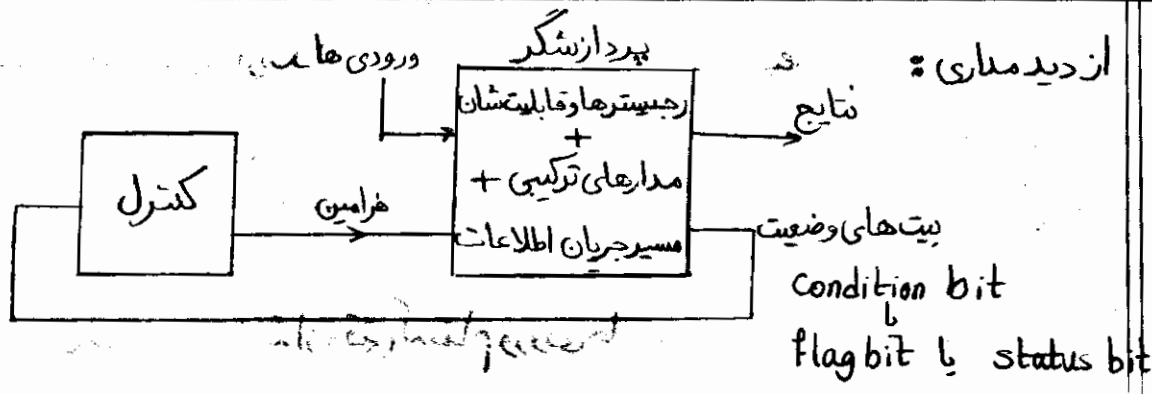 از دید مداری :
پردازشگر
ورودی ها
رجیسترها و قابلیت شان
+
مدارهای ترکیبی +
مسیر جریان اطلاعات
نتایج
کنترل
فرامین
بیت های وضعیت
Condition bit
یا
flag bit یا status bit